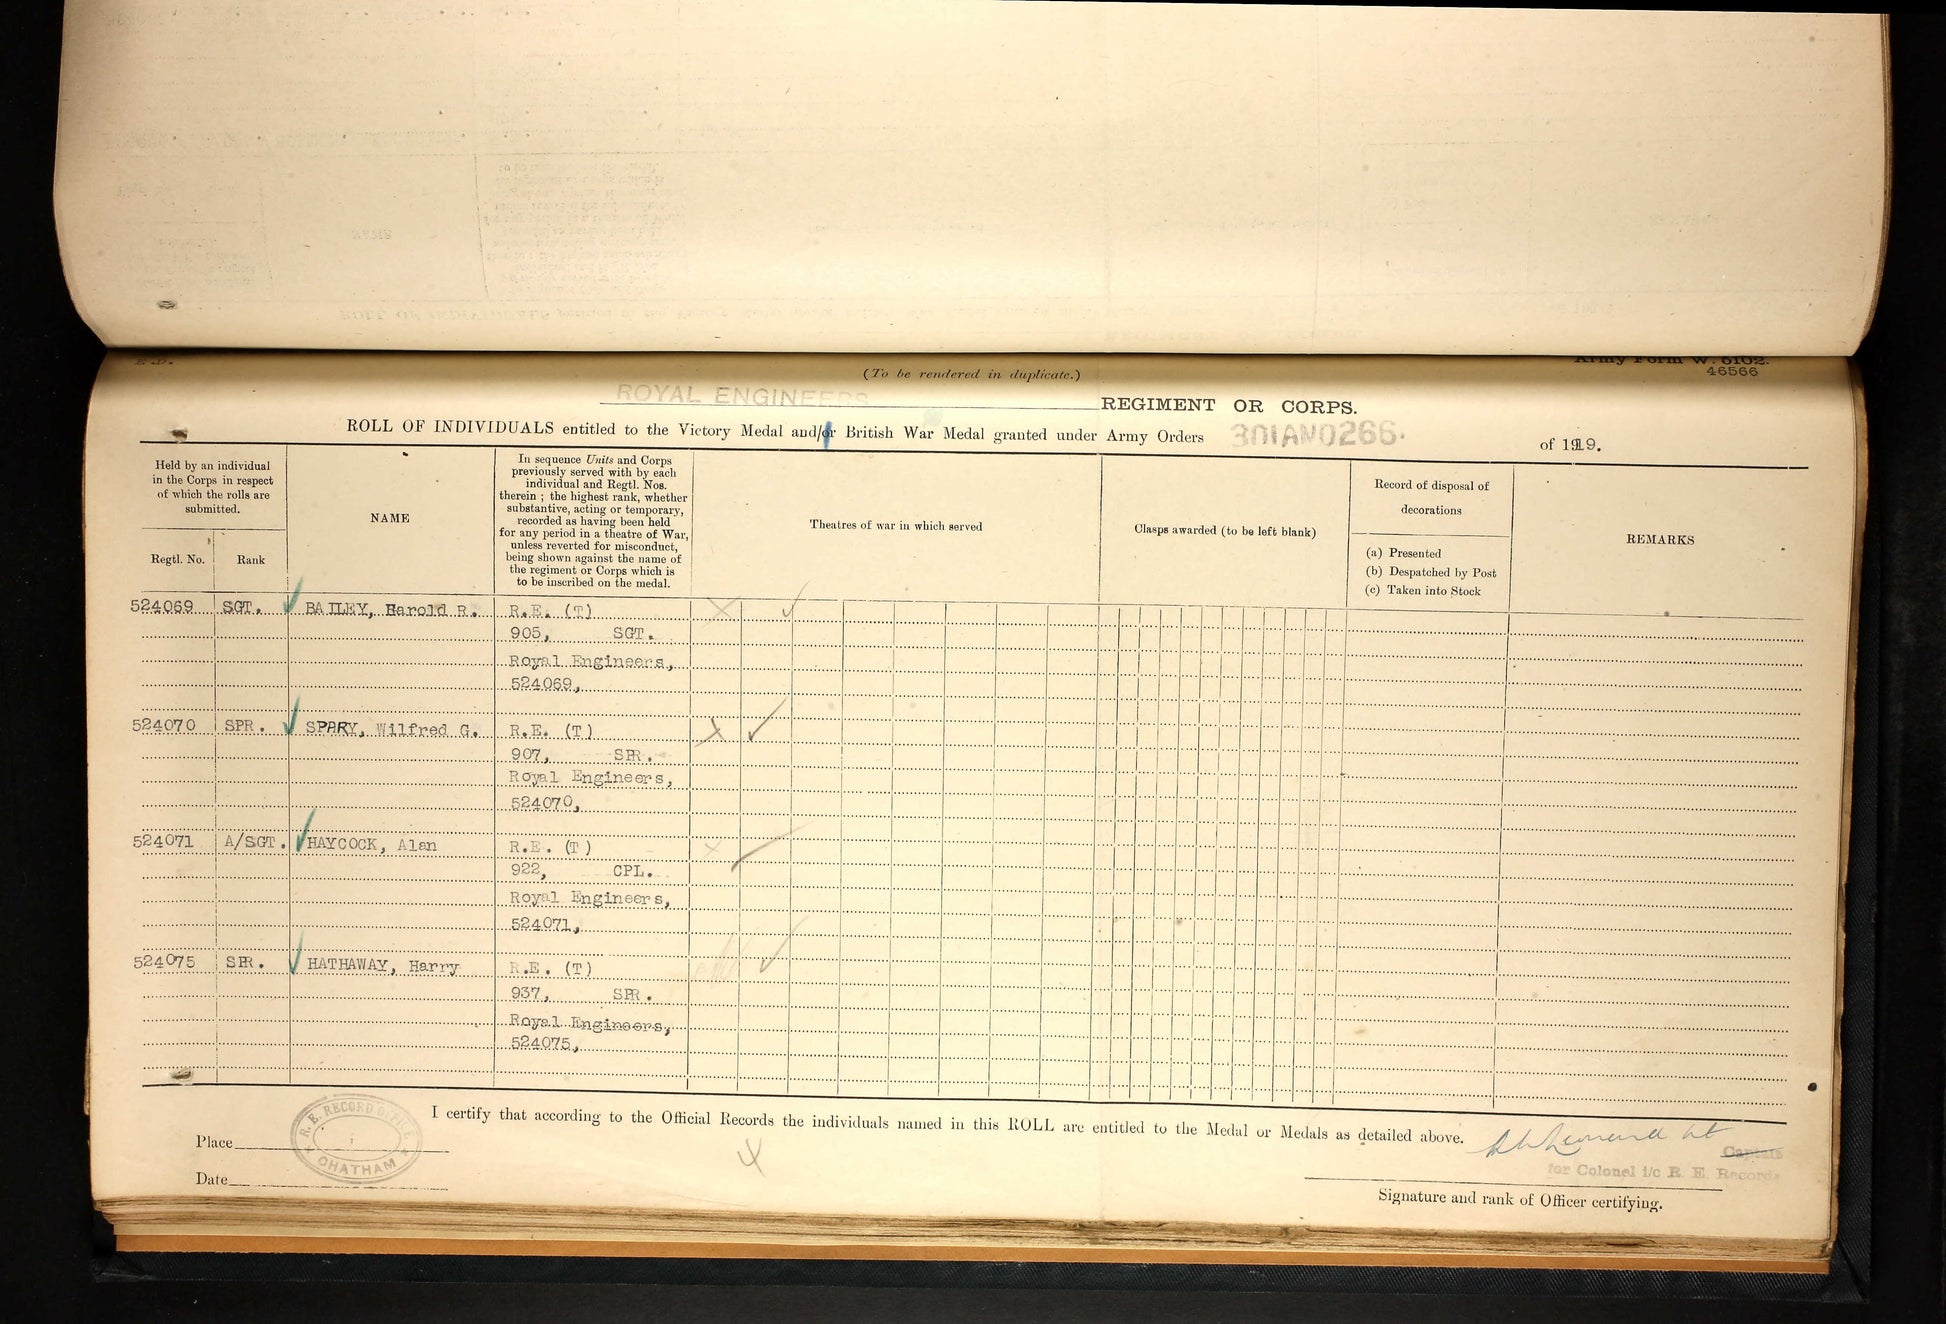 Army Form W. 5102.
46566
(To be rendered in duplicate.)
ROYAL ENGINEERS REGIMENT OR CORPS.
ROLL OF INDIVIDUALS entitled to the Victory Medal and/or British War Medal granted under Army Orders 301AND266. of 1919.
Held by an individual
in the Corps in respect
of which the rolls are
submitted.
Regtl. No. Rank
NAME
In sequence Units and Corps
previously served with by each
individual and Regtl. Nos.
therein ; the highest rank, whether
substantive, acting or temporary,
recorded as having been held
for any period in a theatre of War,
unless reverted for misconduct,
being shown against the name of
the regiment or Corps which is
to be inscribed on the medal.
Theatres of war in which served
Clasps awarded (to be left blank)
Record of disposal of
decorations
(a) Presented
(b) Despatched by Post
(c) Taken into Stock
REMARKS
524069 SGT. BAILEY, Harold R. R.E. (T)
905, SGT.
Royal Engineers,
524069,
524070 SPR. SPARY, Wilfred G. R.E. (T)
907, SPR.
Royal Engineers,
524070,
524071 A/SGT. HAYCOCK, Alan R.E. (T)
922, CPL.
Royal Engineers,
524071,
524075 SPR. HATHAWAY, Harry R.E. (T)
937, SPR.
Royal Engineers,
524075,
I certify that according to the Official Records the individuals named in this ROLL are entitled to the Medal or Medals as detailed above.
Place
R. E. RECORD OFFICE
CHATHAM
Date
4
Captain
for Colonel i/c R. E. Records
Signature and rank of Officer certifying.